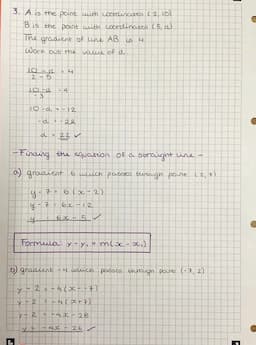 3. A is the point with coordinates (2, 10)
B is the point with coordinates (5, d)
The gradient of line AB is 4
Work out the value of d.
10 - d = 4
2 - 5
10 - d = 4
-3
10 - d = -12
-d = -22
d = 22 ✓
- Finding the equation of a straight line -
a) gradient 6 which passes through point (2, 7)
y - 7 = 6(x - 2)
y - 7 = 6x - 12
y = 6x - 5 ✓
Formula: y - y₁ = m(x - x₁)
b) gradient -4 which passes through point (-7, 2)
y - 2 = -4(x - -7)
y - 2 = -4(x + 7)
y - 2 = -4x - 28
y = -4x - 26 ✓